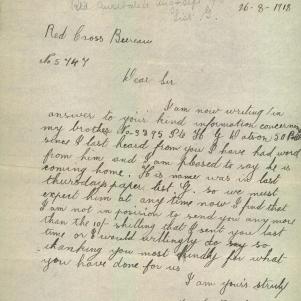 List G.
26-8-1918
Red Cross Bereau
No 5747
Dear Sir
I am now writing in
answer to your kind information concerning
my brother No 3375 Pte H G Watson 50 Batt
since I last heard from you I have had word
from him and I am pleased to say he is
coming home. His name was in last
thursdays paper list G. so we must
expect him at any time now I find that
I am not in position to send you any more
than the 10/- shilling that I sent you last
time or I would willingly do say so
thanking you most kindly for what
you have done for us
I am yours truly